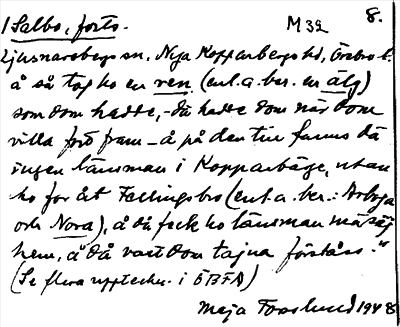 1 Salbo, forts. M 32 8.
Ljusnarsbergs sn, Nya Kopparbergs hd, Örebro l.
å så tog ho en ren (enl. a. ber. en älg)
som dom hadde, - då hadde dom när dom
ville for fram - å på den tin fanns då
ingen länsman i Kopparbärg, utan
ho for åt Fellingsbro (enl. a. ber.: Arboga
och Nora), å då feck ho länsman mä säj
hem, å då vart dom tajna förståss."
(Se flera uppteckn. i ÖBFA)
Maja Forslund 1948